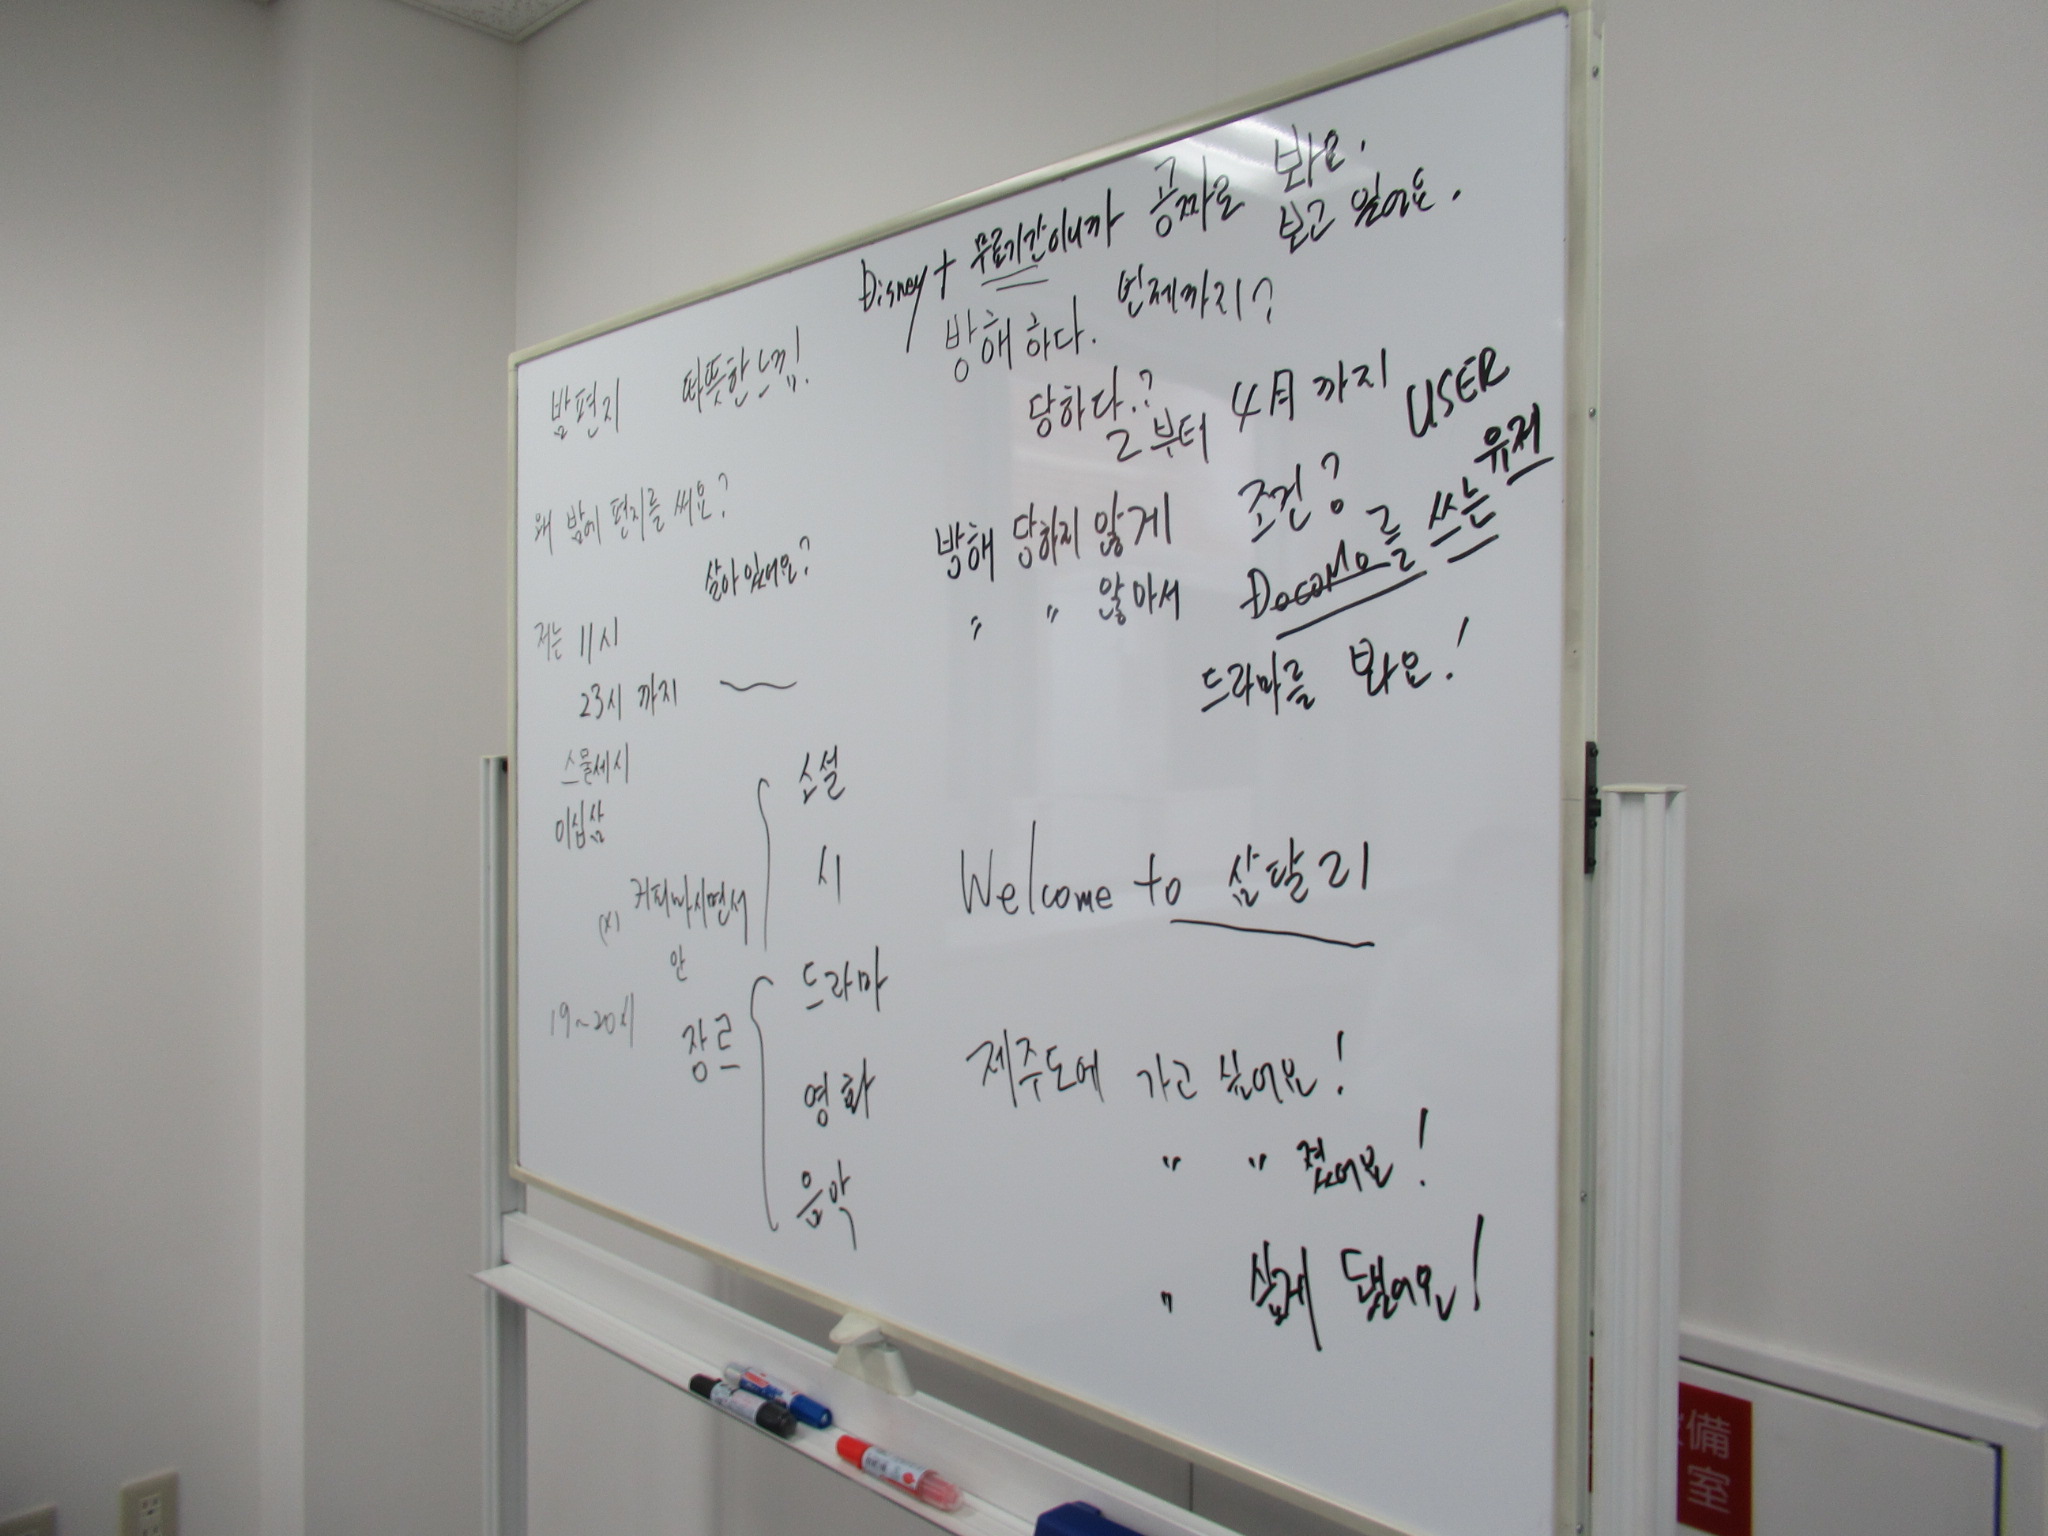 밤편지 따뜻한 느낌!
왜 밤에 편지를 써요?
살아 있어요?
저는 11시
23시 까지
스물세시
이십삼
(X) 커피마시면서
안
19~20시
소설
시
장르
드라마
영화
음악
Disney+ 무료기간이니까 공짜로 봐요.
보고 있어요.
방해하다. 언제까지?
당하다.?
2부터 4月까지
USER
유저
방해 당하지 않게
〃 〃 않아서
조건?
DocoMo를 쓰는
드라마를 봐요!
Welcome to 삼달리
제주도에 가고 싶어요!
〃 〃 졌어요!
〃 살게 됐어요!
備
室